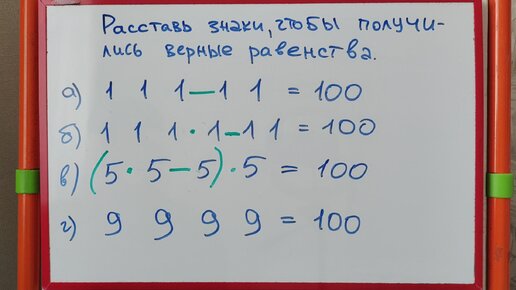 Расставь знаки, чтобы получи-
лись верные равенства.
а) 1 1 1 – 1 1 = 100
б) 1 1 1 · 1 – 1 1 = 100
в) (5 · 5 – 5) · 5 = 100
г) 9 9 9 9 = 100